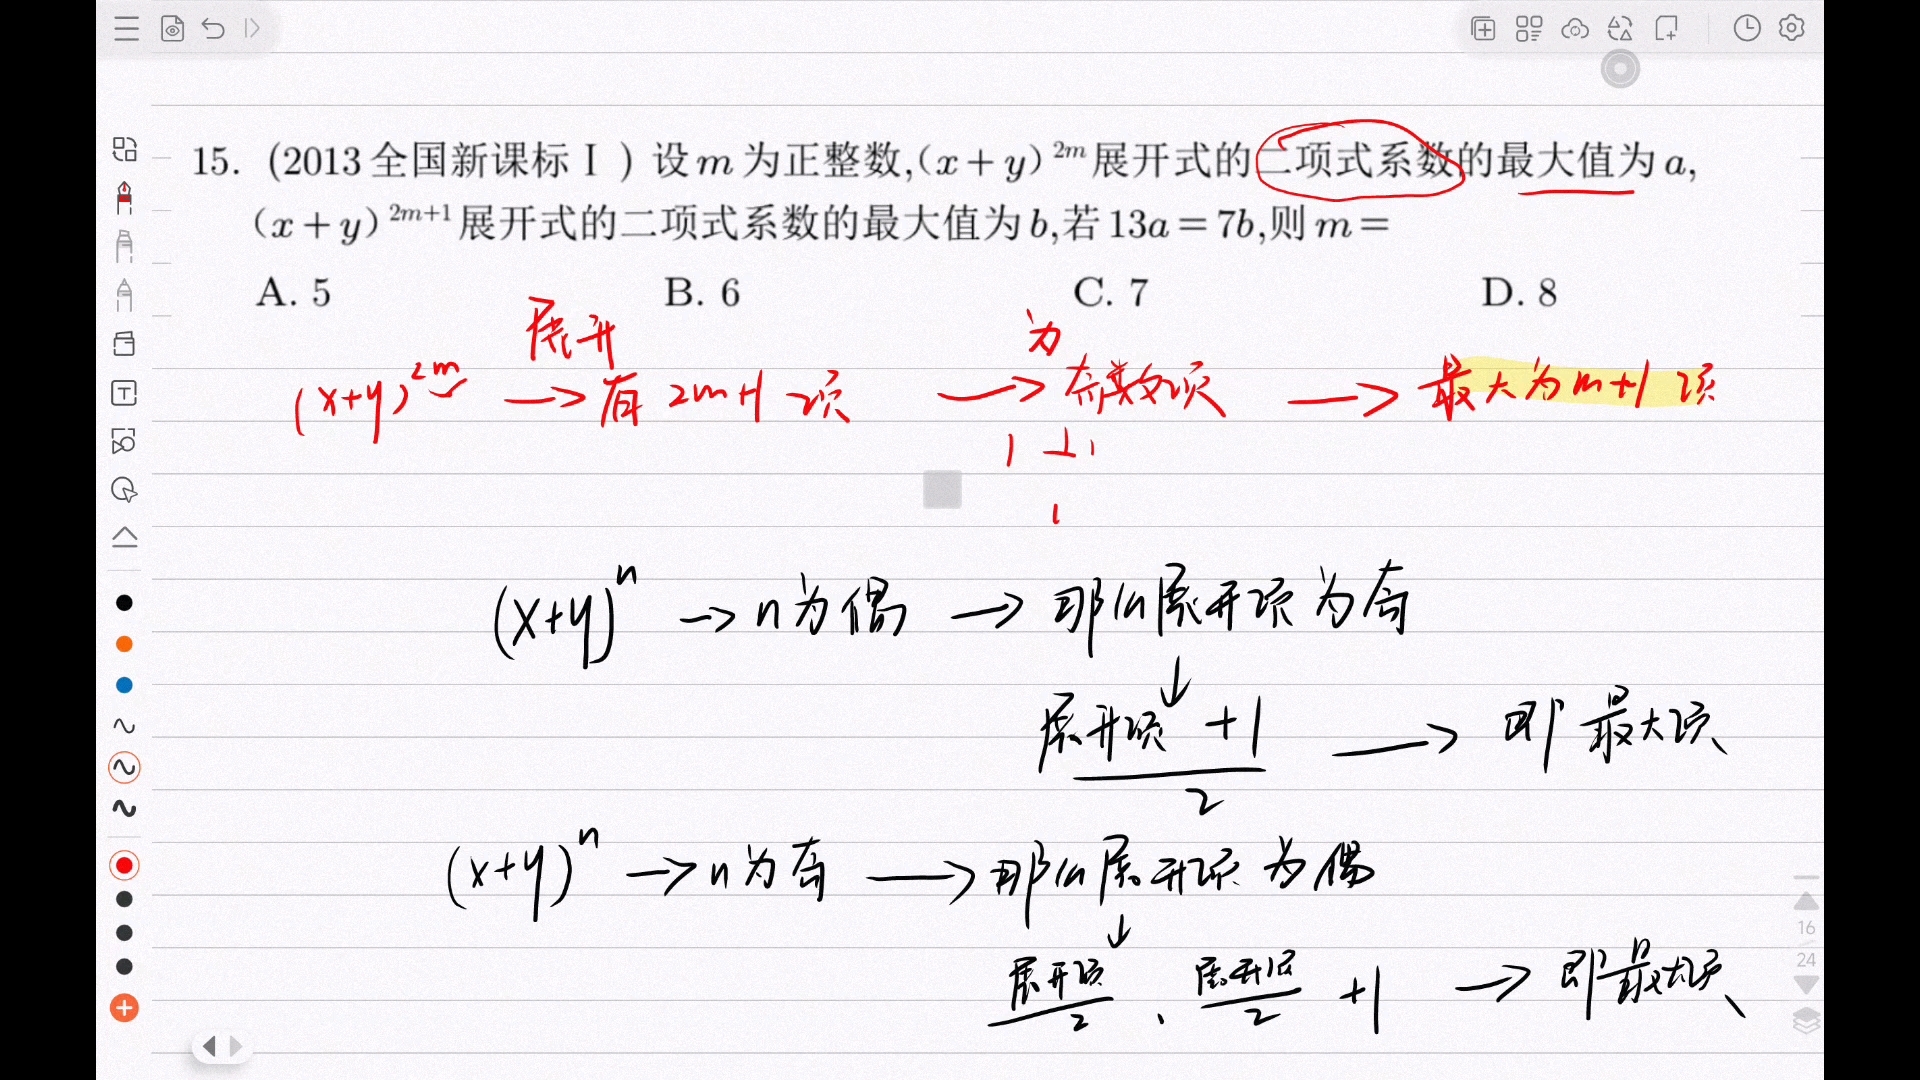 15. (2013全国新课标Ⅰ) 设m为正整数,(x+y)^{2m}展开式的二项式系数的最大值为a,
(x+y)^{2m+1}展开式的二项式系数的最大值为b,若13a=7b,则m=
A. 5 B. 6 C. 7 D. 8
展开 为
(x+y)^{2m} → 有 2m+1 项 → 奇数项 → 最大为m+1项
(x+y)^n → n为偶 → 那么展开项为奇
↓
展开项+1 / 2 → 即最大项
(x+y)^n → n为奇 → 那么展开项为偶
↓
展开项/2、展开项/2 +1 → 即最大项
16
24